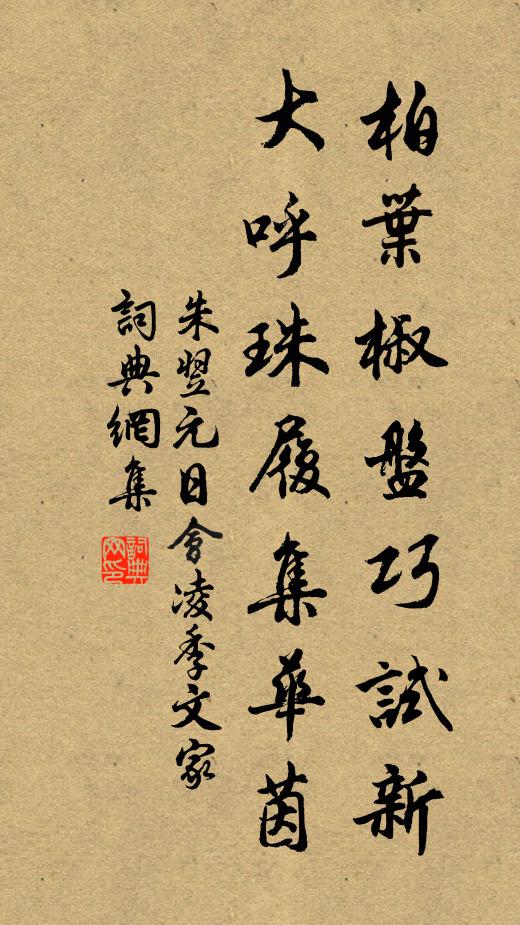 柏葉椒盤巧試新
大呼珠履集華茵
朱翌元日會凌季文家
詞典網集
詞典网印